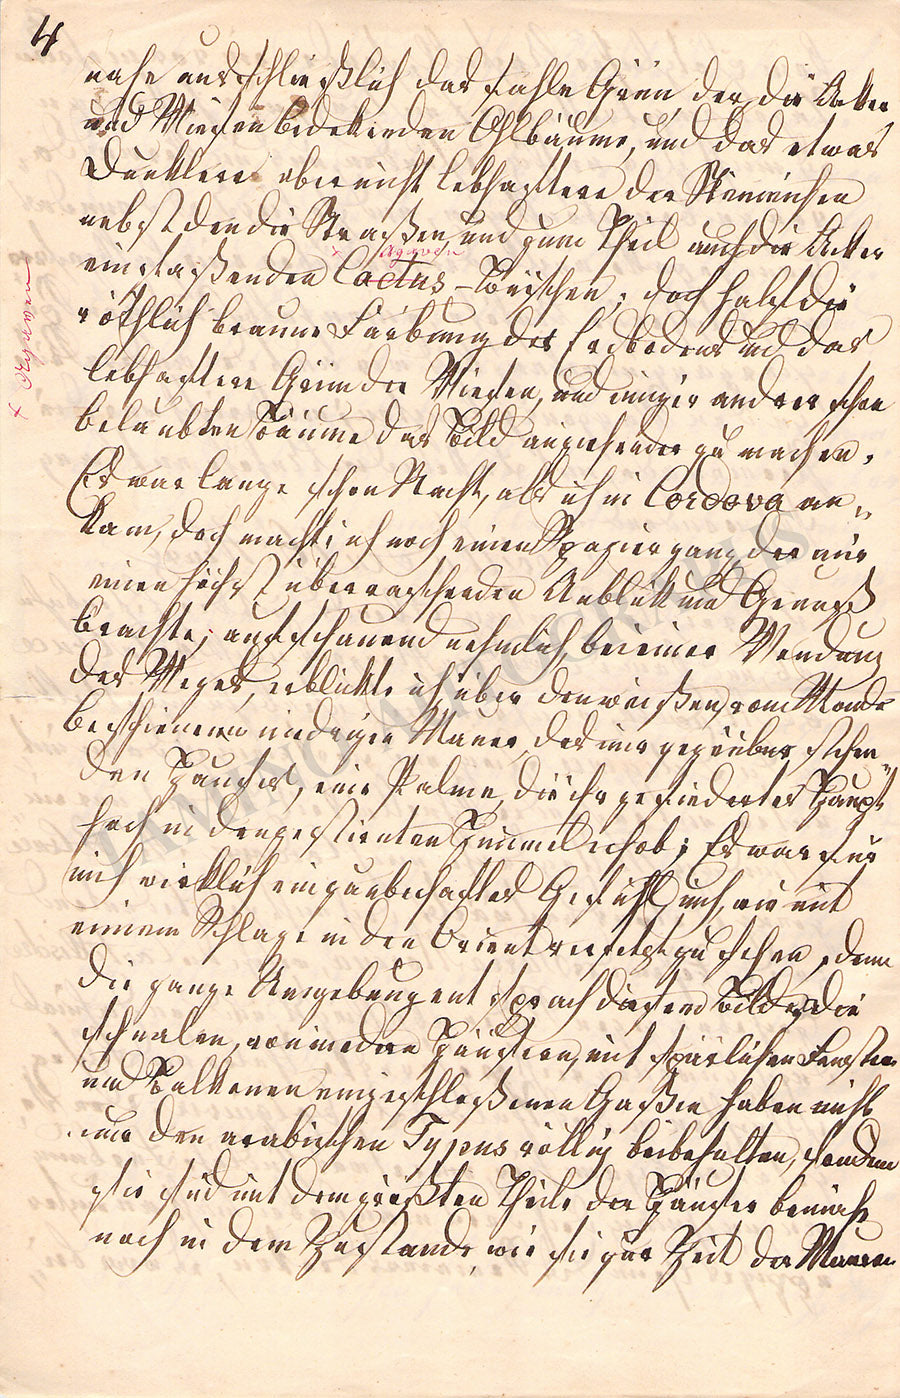 4
nahe ausschließlich das fahle Grün der die Äcker
und Wiesen bedekenden Ölbäume, und das etwas
Dunklere aber nicht lebhaftere der Steineichen
nebst den die Straßen und zum Theil auch die Äcker
Agaven
einfaßenden Cactus-Büschen; doch half die
röthlich braune Färbung des Erdbodens und das
x Agaven
lebhaftere Grün der Wiesen, und einiger andrer schon
belaubten Bäume das Bild anziehender zu machen.
Es war lange schon Nacht, als ich in Cordova an-
kam, doch machte ich noch einen Spaziergang, der mir
einen höchst überraschenden Anblik und Genuß
brachte; aufschauend nehmlich, bei einer Wendung
des Weges, erblikte ich über den weißen, vom Monde
beschienenen niedrigen Mauer des mir gegenüber stehen-
den Hauses, eine Palme, die ihr gefiedertes Haupt
hoch in den gestirnten Himmel erhob; Es war für
mich wirklich ein zauberhaftes Gefühl mich, wie mit
einem Schlage in den Orient versetzt zu sehen, denn
die ganze Umgebung entsprach diesem Bilde; die
schmalen, von niedren Häusern, mit spärlichen Fenstern
und Balkonen eingeschloßenen Gaßen haben nicht
nur den arabischen Typus völlig beibehalten, sondern
sie sind mit dem größten Theile der Häuser beinah
noch in dem Zustande, wie sie zur Zeit der Mauren